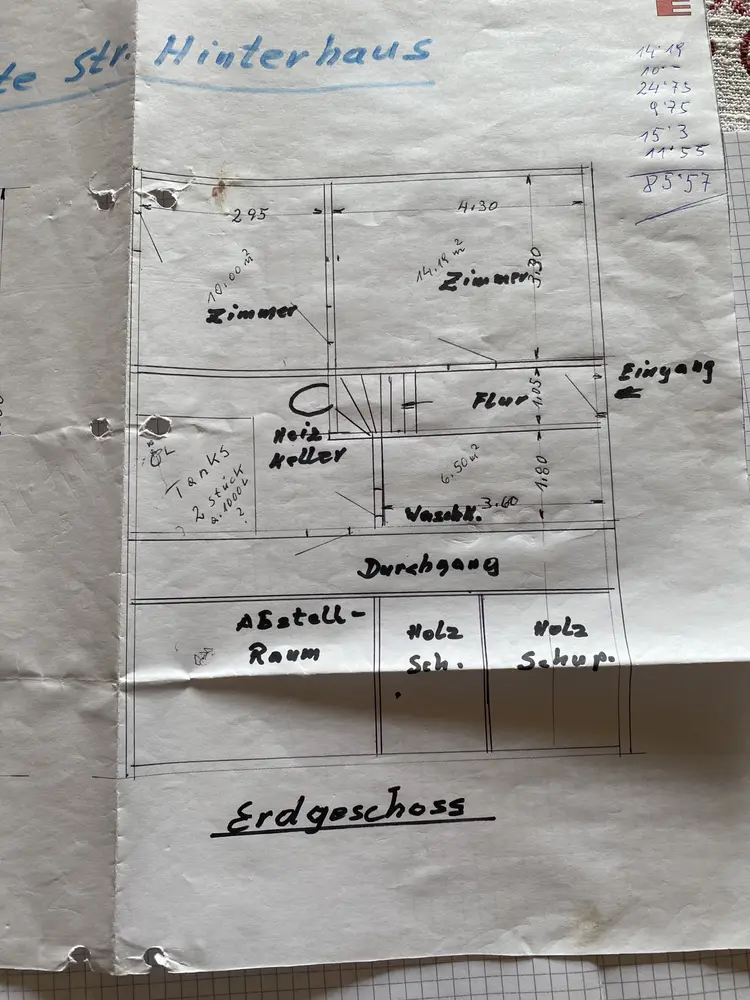 te Str. Hinterhaus
14.19
10.-
24.73
9.75
15.3
11.55
85.57
295
4.30
10.00 m²
Zimmer
14.19 m²
Zimmer
3.30
Eingang
Flur
1.05
Heiz
Keller
ÖL
Tanks
2 Stück
a. 1000 L
?
6.50 m²
1.80
3.60
Waschk.
Durchgang
Abstell-
Raum
Holz
Sch.
Holz
Schup.
Erdgeschoss